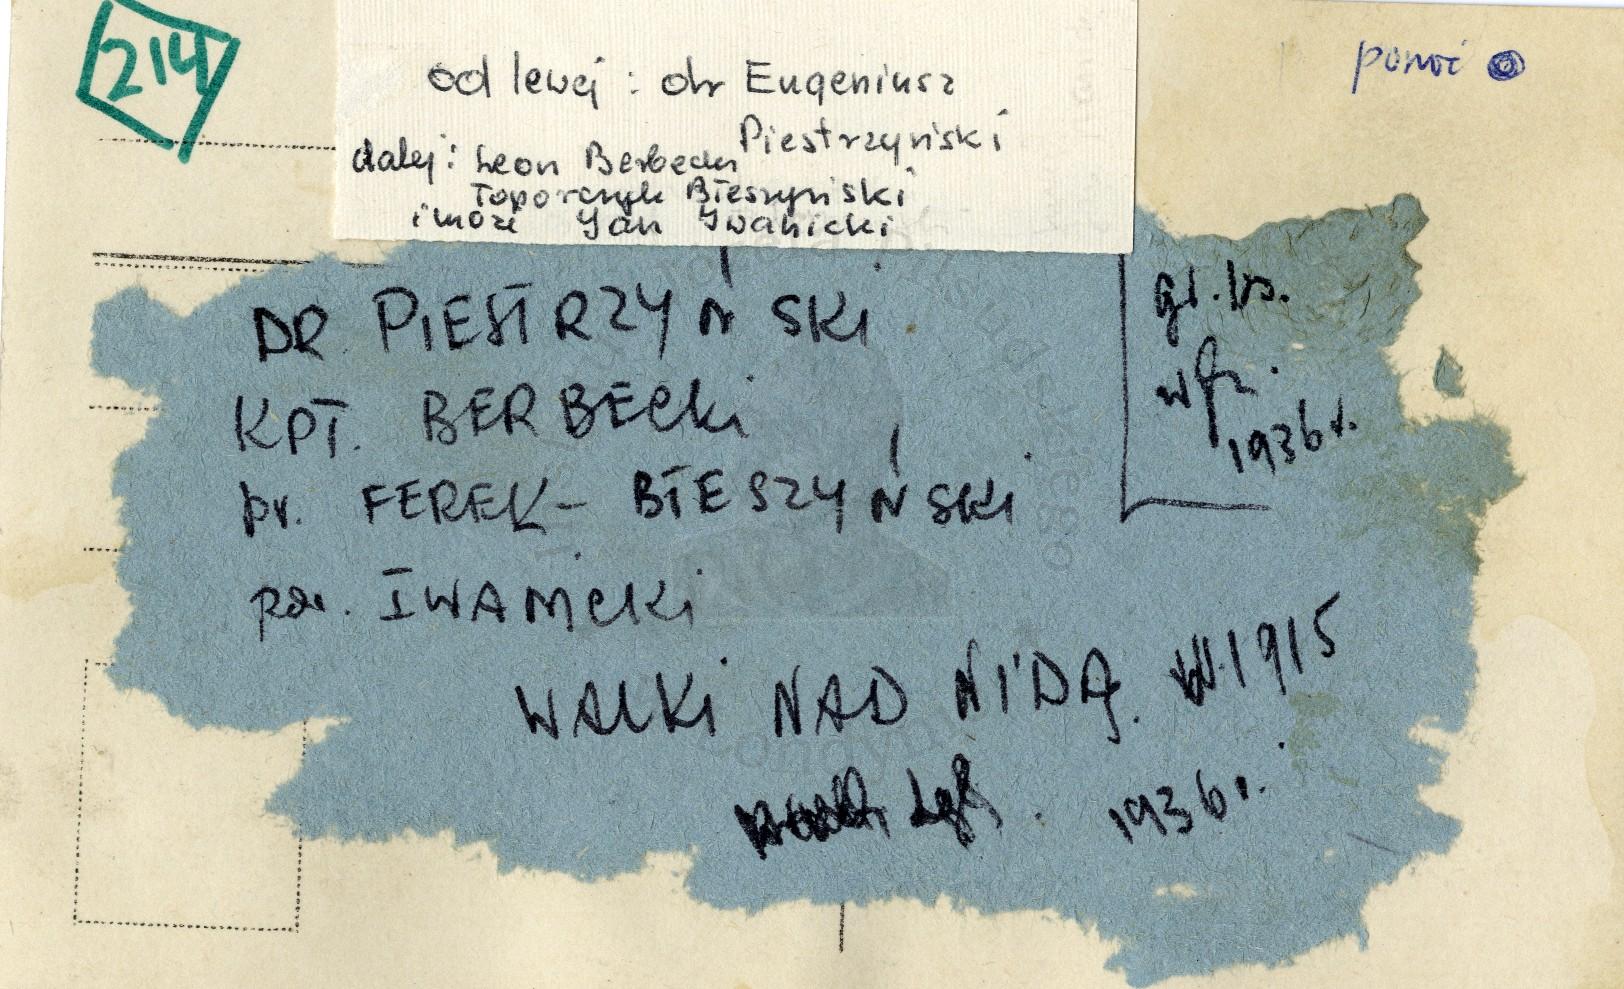 214
od lewej: dr Eugeniusz
Piestrzyński
dalej: Leon Berbecki
Toporczyk Błeszyński
i może Jan Iwanicki
DR PIESTRZYŃSKI
KPT. BERBECKI
pr. FEREK-BŁESZYŃSKI
por. IWANICKI
WALKI NAD NIDĄ. W 1915
1936 r.
1936 r.